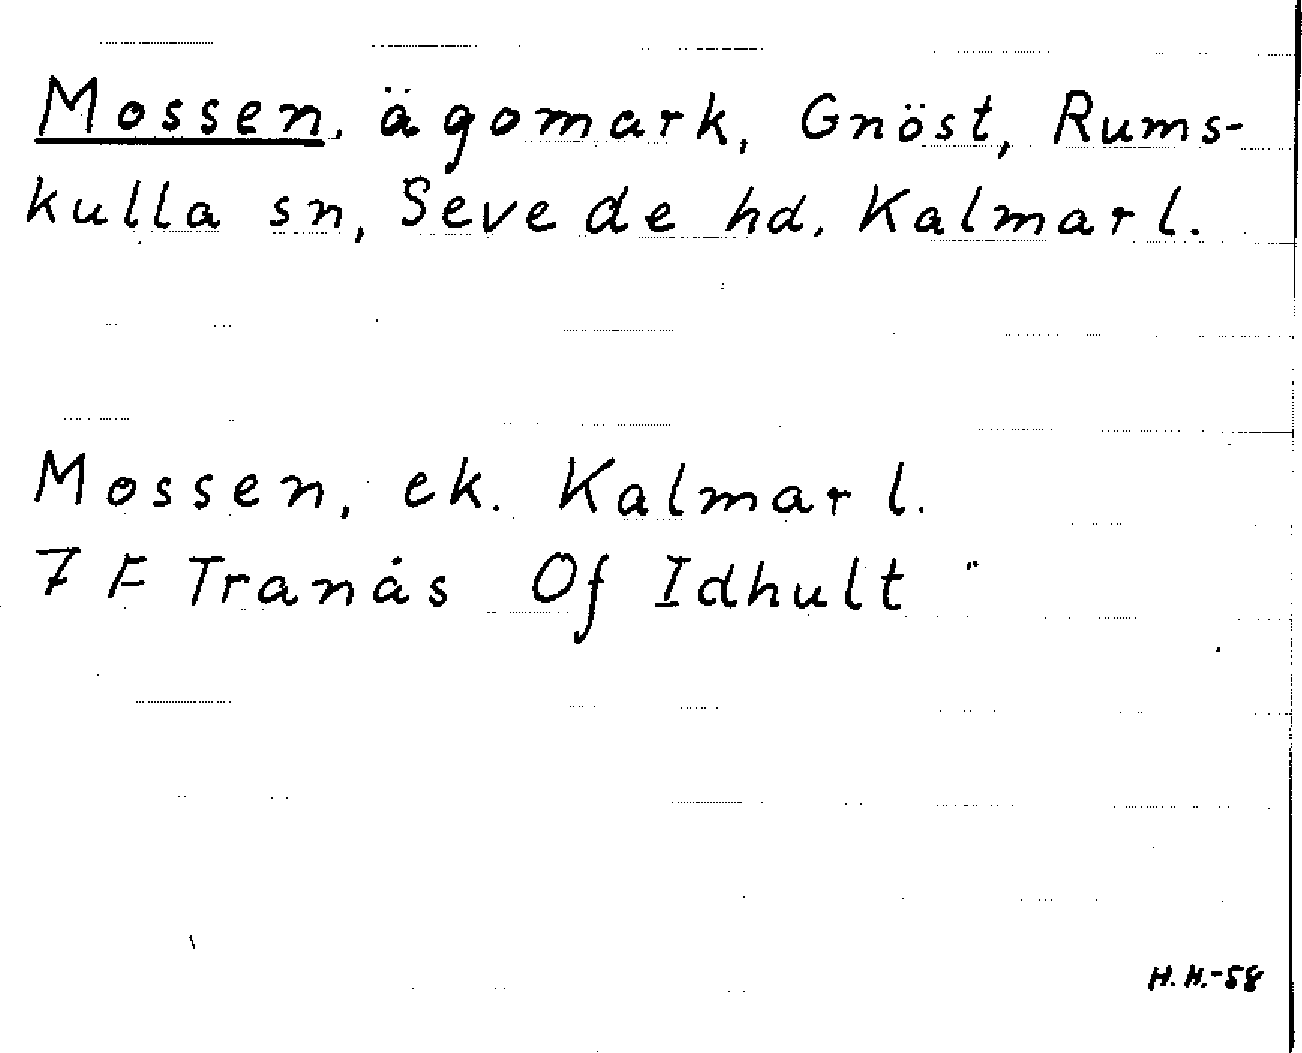 Mossen, ägomark, Gnöst, Rums-
kulla sn, Sevede hd. Kalmar l.
Mossen, ek. Kalmar l.
7 F Tranås Of Idhult
H.H.-58